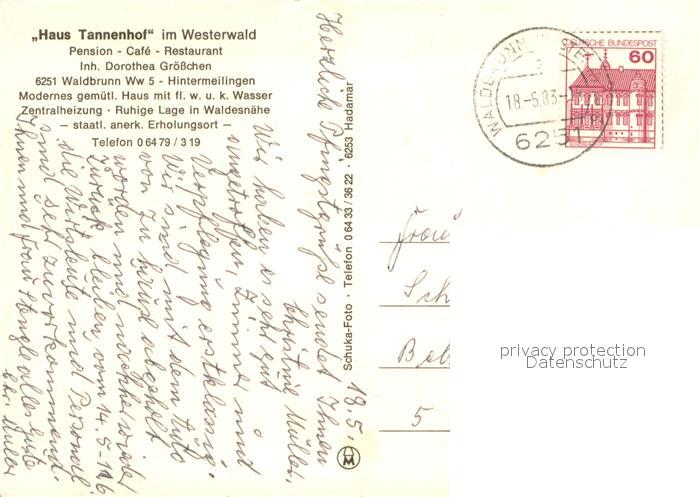 „Haus Tannenhof" im Westerwald
Pension - Café - Restaurant
Inh. Dorothea Größchen
6251 Waldbrunn Ww 5 - Hintermeilingen
Modernes gemütl. Haus mit fl. w. u. k. Wasser
Zentralheizung · Ruhige Lage in Waldesnähe
– staatl. anerk. Erholungsort –
Telefon 0 64 79 / 3 19
Herzliche Pfingstgrüße sendet Ihnen
Christine Müller.
18.5.
Wir haben es sehr gut
angetroffen, Zimmer und
Verpflegung erstklassig.
Wir sind mit dem Auto
von zu Haus abgeholt
worden und nachher wieder
zurück, bleiben vom 14.5-
die Wirtsleute und Personal
sind sehr zuvorkommend.
Ihnen und Frau Stengle alles gute
Müller
Schuka-Foto · Telefon 0 64 33 / 36 22 · 6253 Hadamar
18.-5.83-
6251
DEUTSCHE BUNDESPOST
60
Frau
Sch
5
privacy protection
Datenschutz